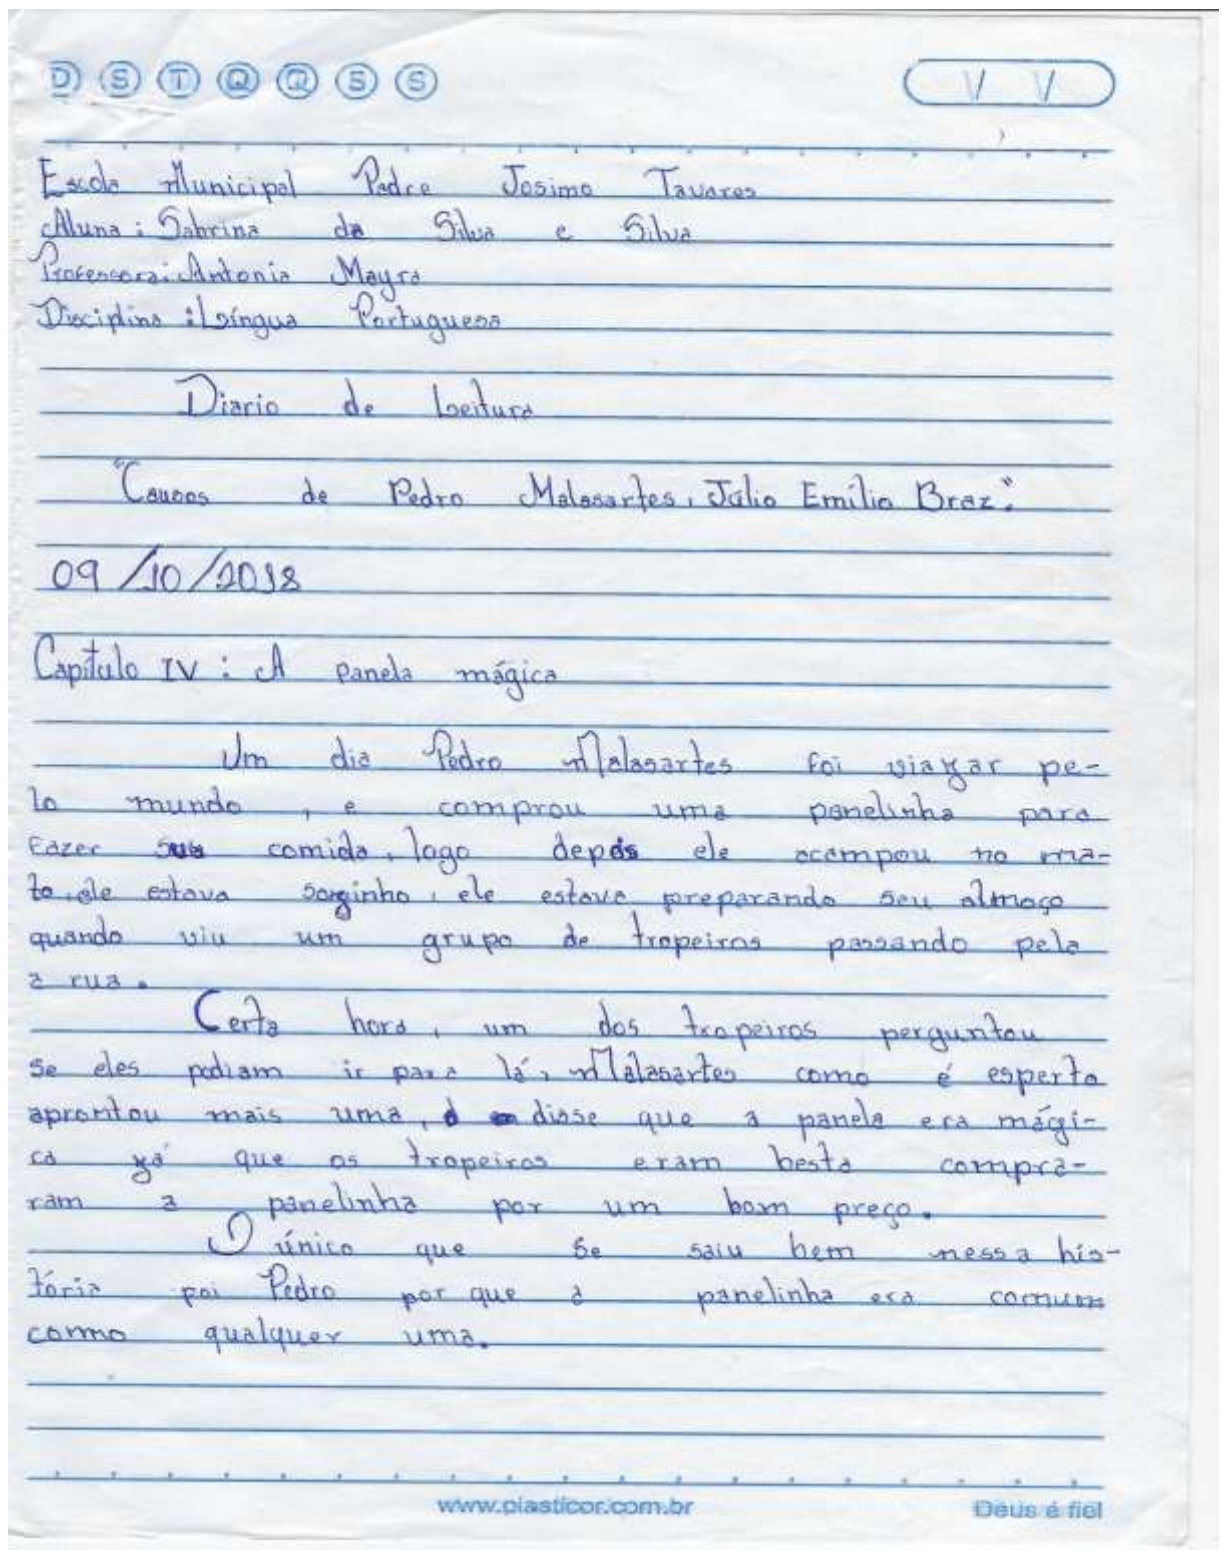 D S T Q Q S S
Escola Municipal Padre Josimo Tavares
Aluna: Sabrina da Silva e Silva
Professora: Antonia Mayra
Disciplina: Língua Portuguesa
Diario de Leitura
"Causos de Pedro Malasartes, Júlio Emílio Braz".
09/10/2018
Capítulo IV: A panela mágica
Um dia Pedro Malasartes foi viajar pe-
lo mundo, e comprou uma panelinha para
fazer sua comida, logo depois ele acampou no ma-
to, ele estava sozinho, ele estava preparando seu almoço
quando viu um grupo de tropeiros passando pela
a rua.
Certa hora, um dos tropeiros perguntou
se eles podiam ir para lá, Malasartes como é esperto
aprontou mais uma, disse que a panela era mági-
ca já que os tropeiros eram besta compra-
ram a panelinha por um bom preço.
O único que se saiu bem nessa his-
tória foi Pedro por que a panelinha era comum
como qualquer uma.
www.plasticor.com.br
Deus é fiel